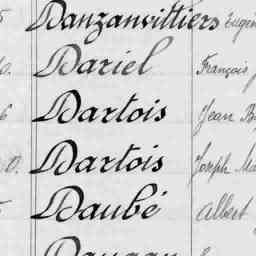 Danzanvilliers Eugèn
0. Dariel François J
6 Dartois Jean B
0. Dartois Joseph Ma
Daubé Albert